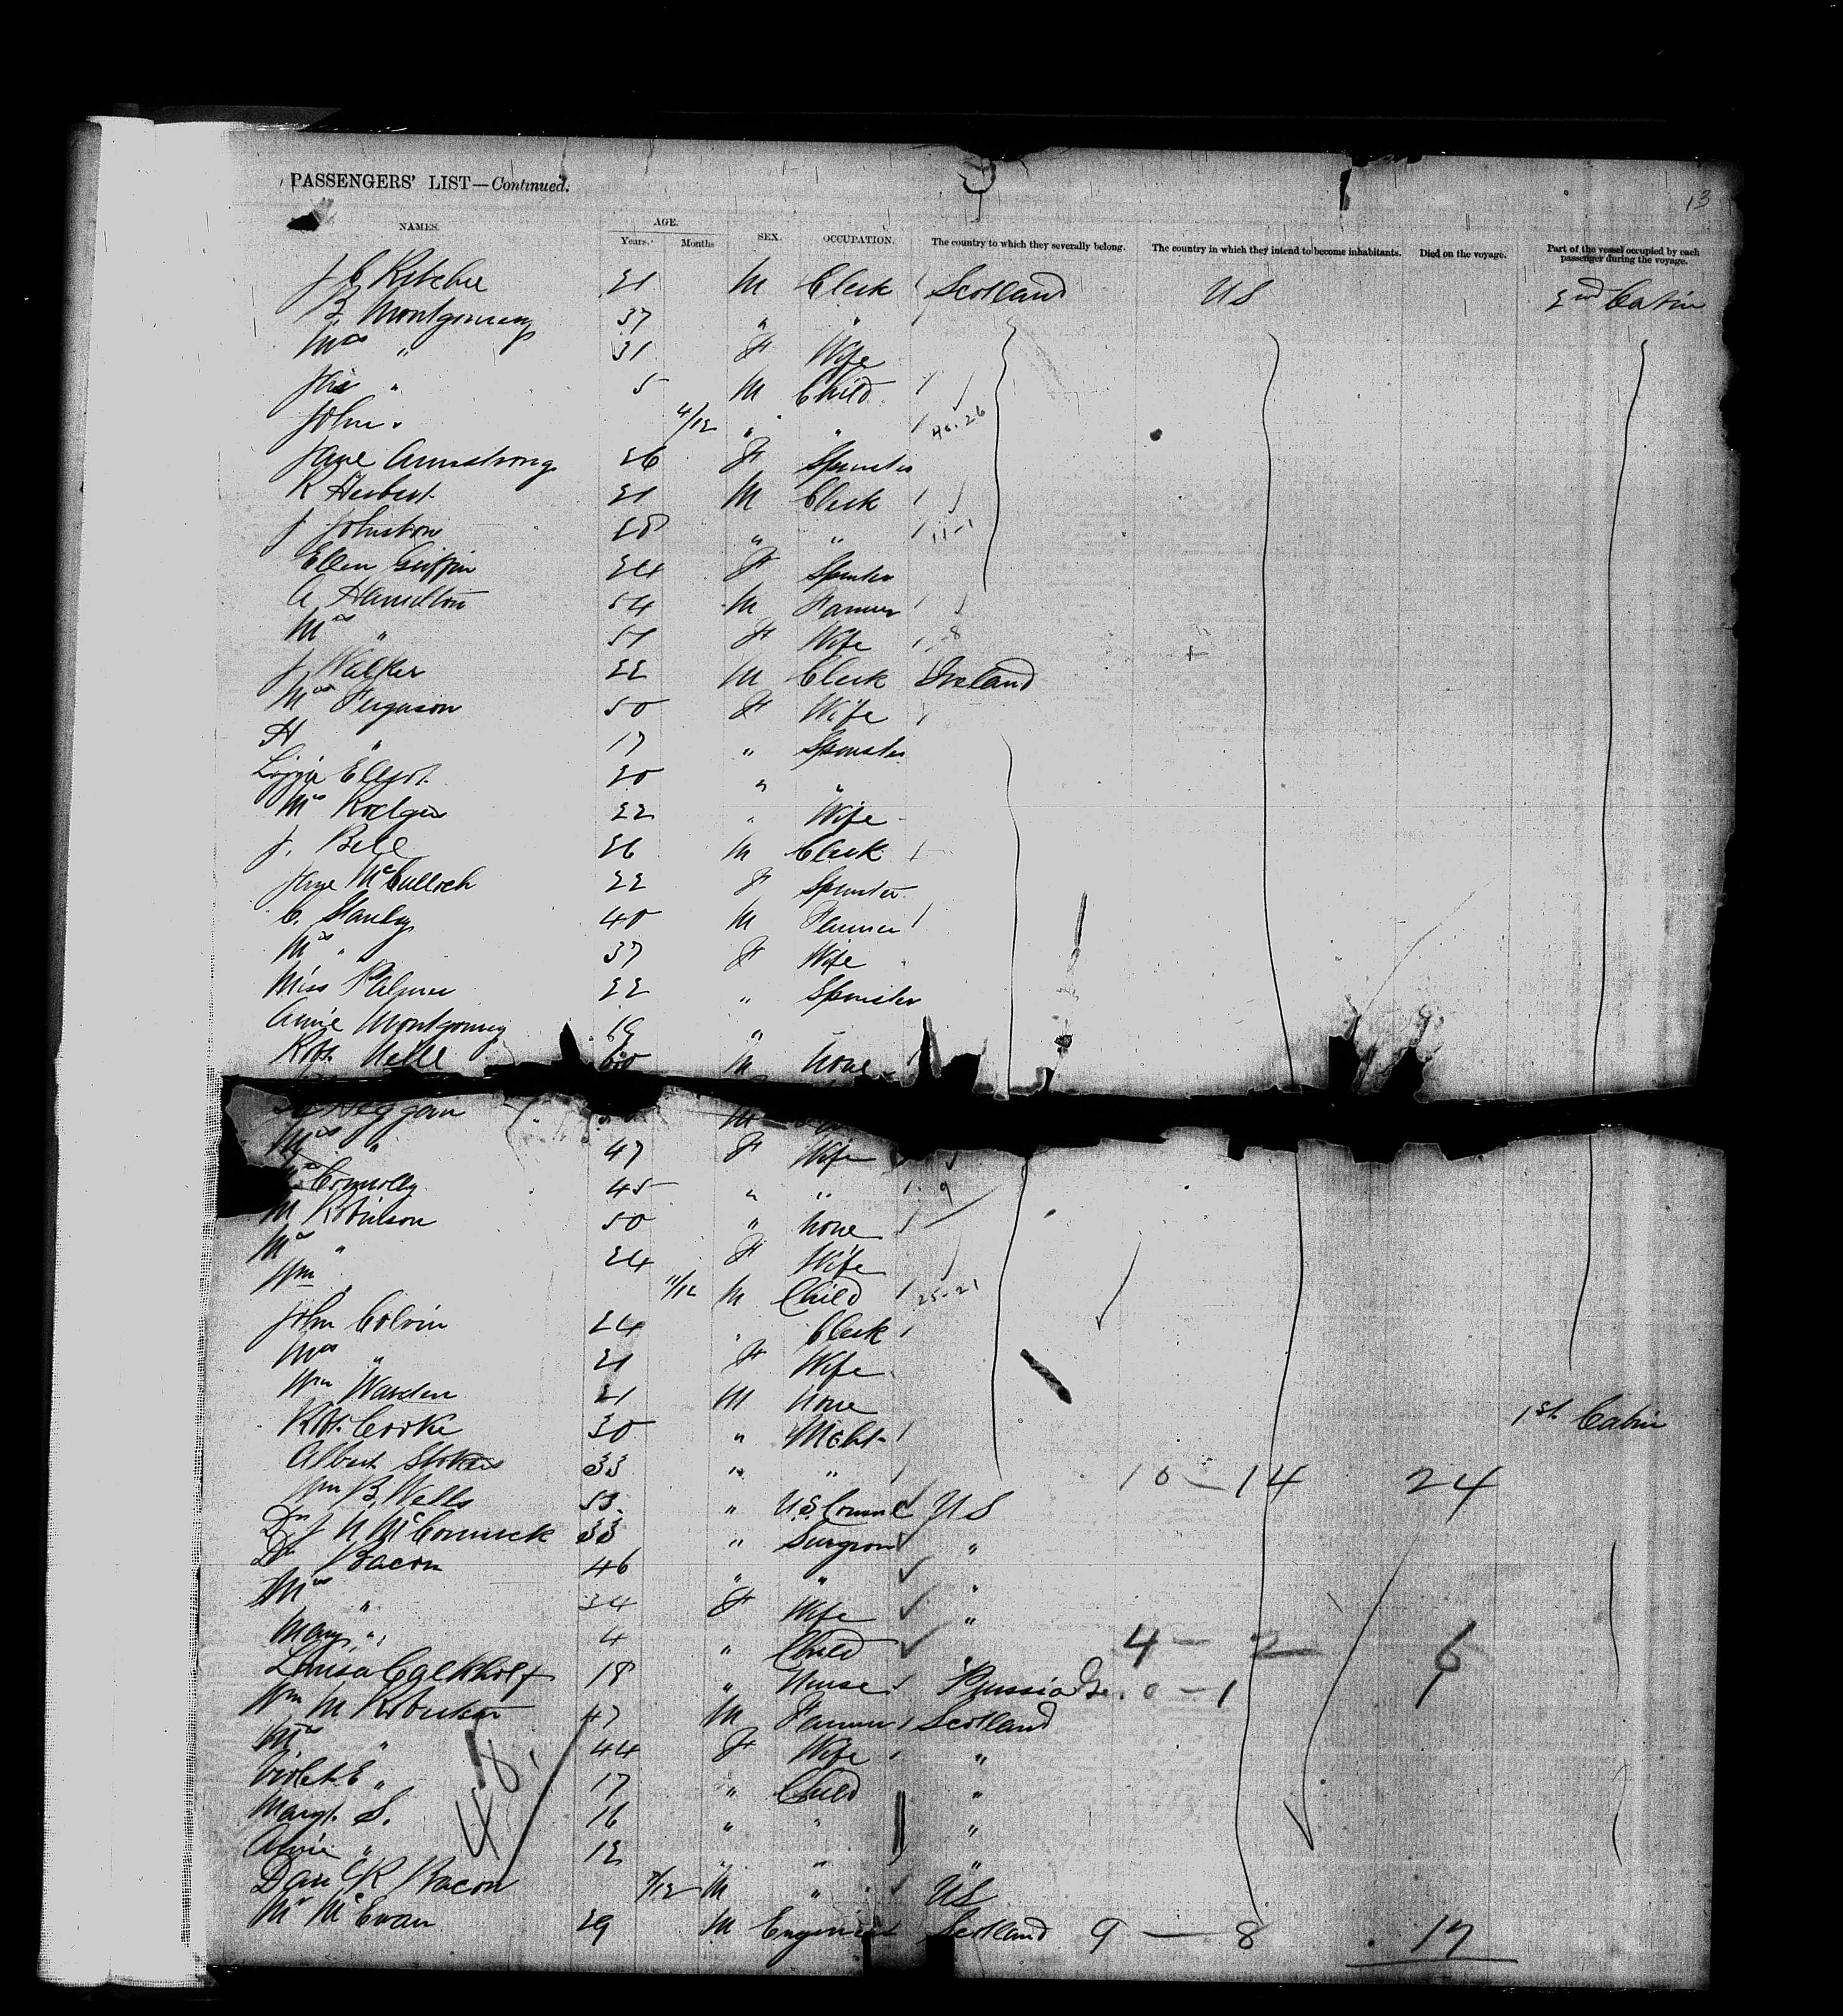 PASSENGERS' LIST—Continued.
13
NAMES. AGE. Years. Months SEX. OCCUPATION. The country to which they severally belong. The country in which they intend to become inhabitants. Died on the voyage. Part of the vessel occupied by each passenger during the voyage.
J C Ritchie 21 M Clerk Scotland US 2nd Cabin
B Montgomery 37 " "
Mrs " 31 F Wife
Jas " 5 M Child
John " 4/12 " " 46-26
Jane Armstrong 26 F Spinster
R Herbert 21 M Clerk
J Johnston 28 " " 11-1
Ellen Griffin 24 F Spinster
A Hamilton 54 M Farmer
Mrs " 51 F Wife 8
J Walker 22 M Clerk Ireland
Mrs Ferguson 50 F Wife
H " 17 " Spinster
Lizzie Elliot 20 " "
Mrs Rodgers 22 " Wife
J. Bell 26 M Clerk
Jane McCulloch 22 F Spinster
C. Stanley 40 M Farmer
Mrs " 37 F Wife
Miss Palmer 22 " Spinster
Annie Montgomery 19 "
Robt. 60 M None
Heggan M
Mrs " 47 F Wife
Connolly 45 " " 9
M Robinson 50 " None
Mrs " 24 F Wife
Wm " 11/12 M Child 25-21
John Colvin 24 " Clerk
Mrs " 21 F Wife
Wm Warden 21 M None
Robt. Cooke 30 " Mcht 1st Cabin
Albert Stokes 33 " " 10 — 14 24
Wm B. Wells 53 " U.S. Consul US
Dr J N McCormick 33 " Surgeon "
Dr Bacon 46 " " "
Mrs " 34 F Wife "
Mary " 4 " Child 4 — 2 6
Louisa 18 " Nurse Prussia Ge. 0 — 1
Wm M 47 M Farmer Scotland
Mrs " 44 F Wife "
Violet E " 17 " Child "
Margt. S. 16 " " "
Annie " 12 " " "
48
Dan C R Bacon 7/12 M " US
Mr McEwan 29 M Engineer Scotland 9 — 8 17